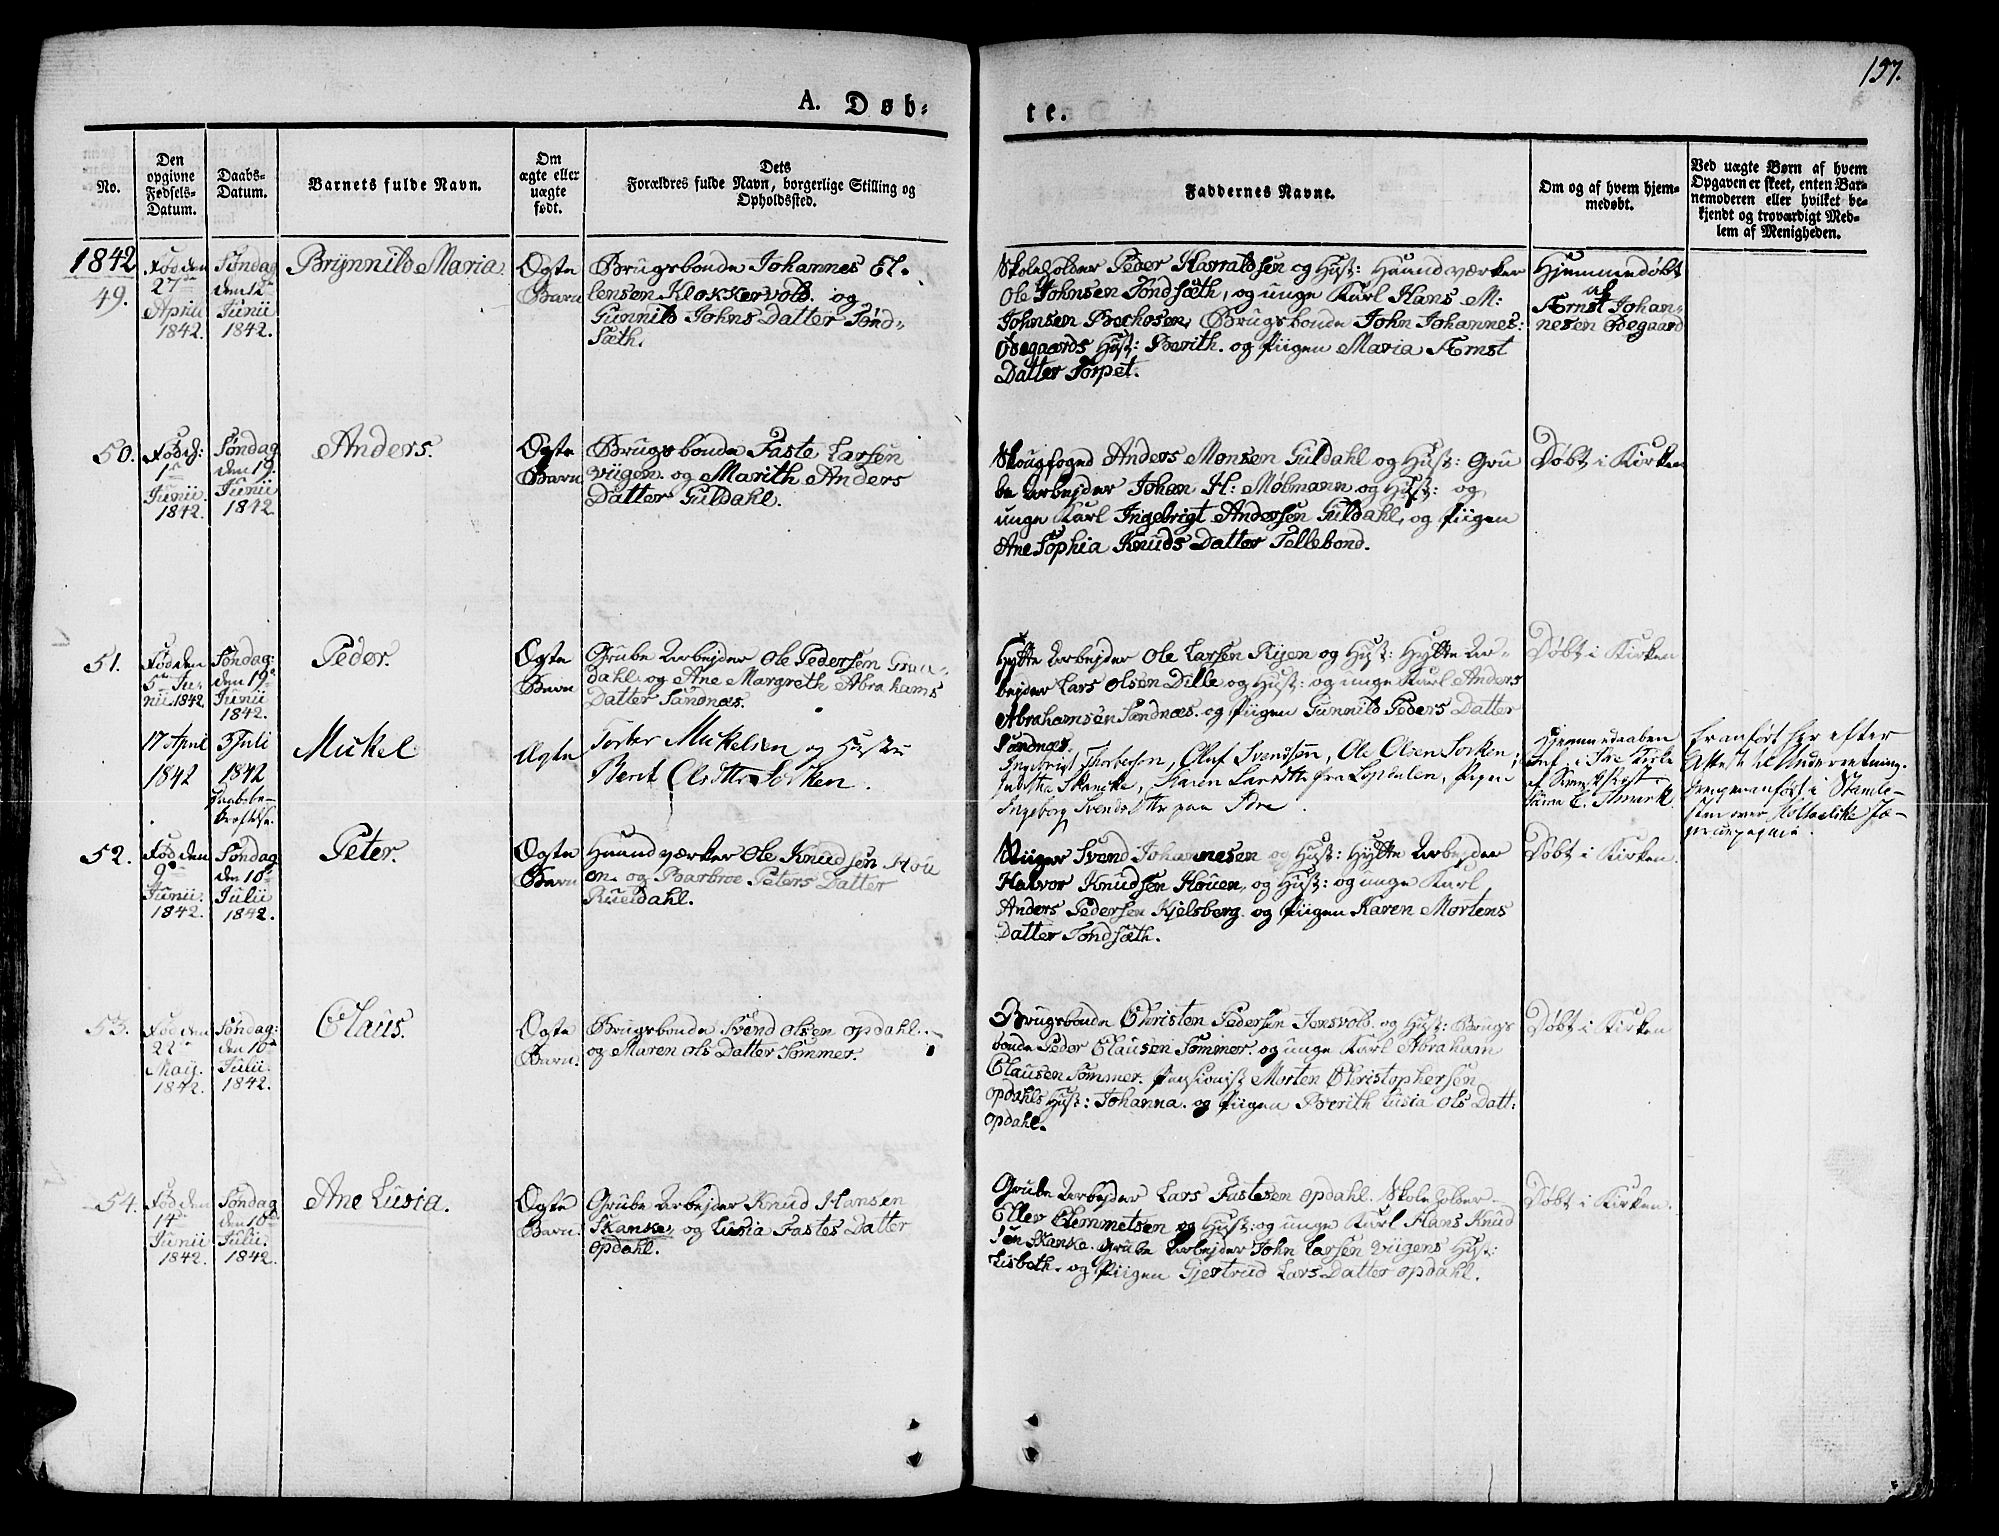 197.
A. Døb-
te.
No.
Den
opgivne
Fødsels-
Datum.
Daabs-
Datum.
Barnets fulde Navn.
Om
ægte eller
uægte
født.
Dets
Forældres fulde Navn, borgerlige Stilling og
Opholdssted.
Faddernes Navne.
Om og af hvem hjem-
medøbt.
Ved uægte Børn af hvem
Opgaven er skeet, enten Bar-
nemoderen eller hvilket be-
kjendt og troværdigt Med-
lem af Menigheden.
1842
49.
Fød den
27de
April
1842.
Søndag
den 12te
Junii
1842.
Brynnild Maria
Ægte
Barn
Brugsbonde Johannes El-
lensen Klokkervold. og
Gunnild Johns Datter Tønd-
Sæth.
Skoleholder Peder Harraldsen og Hust: Haandværker
Ole Johnsen Tøndsæth, og unge Karl Hans M:
Johnsen Berchosen, Brugsbonde John Johannes:
Ødegaards Hust: Berith. og Piigen Maria Ærnst
Datter Torpet.
Hjemmedøbt
af
Ærnst Johan-
nesen Ødegaard
50.
Fød d:
1te
Junii
1842.
Søndag
den 19.
Junii
1842.
Anders.
Ægte
Barn
Brugsbonde Faste Larsen
Viigen. og Marith Anders
Datter Guldahl.
Skougfoged Anders Monsen Guldahl og Hust: Gru
be Arbejder Johan H: Mølmann og Hust: og
unge Karl Ingebrigt Andersen Guldahl, og Piigen
Ane Sophia Knuds Datter Tellebond.
Døbt i Kirken
51.
Fød den
5te Ju-
nii. 1842
Søndag:
den 19de
Junii
1842.
Peder.
Ægte
Barn
Grube Arbejder Ole Pedersen Gruu-
dahl. og Ane Margreth Abrahams
Datter Sandnæs.
Hytte Arbejder Ole Larsen Ryen og Hust: Hytte Ar-
bejder Lars Olsen Dille og Hust: og unge Karl Anders
Abrahamsen Sandnæs. og Piigen Gunnild Peders Datter
Sandnæs.
Døbt i Kirken
17 April
1842
3 Juli
1842
Daabsbe-
kræftelse.
Mickel
Ægte
Torber Mickelsen og Hustru
Berit Olsdtr Sorken.
Ingebrigt Thorbersen, Oluf Svendsen, Ole Olsen Sorken,
Juditha Skancke, Karen Larsdtr fra Lossdalen, Pigen
Ingeborg Svendsdtr paa Idre.
Hjemmedaaben
bekræft. i Idre Kirke
Fremført her efter
Attest til Underretning.
52.
Fød den
9de
Junii.
1842.
Søndag
den 10de
Julii
1842.
Peter.
Ægte
Barn
Haandværker Ole Knudsen Hou
en. og Barbroe Peters Datter
Rueldahl.
Stiiger Svend Johannesen og Hust: Hytte Arbejder
Halvor Knudsen Houen, og Hust: og unge Karl
Anders Pedersen Kjelsberg. og Piigen Karen Mortens
Datter Tøndsæth.
Døbt i Kirken.
53.
Fød den
22de
May.
1842.
Søndag:
den 10de
Julii.
1842.
Claus.
Ægte
Barn.
Brugsbonde Svend Olsen Opdahl.
og Maren Ols Datter Sommer.
Brugsbonde Christen Pedersen Jensvold. og Hust: Brugs
bonde Peder Clausen Sommer. og unge Karl Abraham
Clausen Sommer. Pensionist Morten Christophersen
Opdahls Hust: Johanna. og Piigen Berith Lusia Ols Datt:
Opdahl.
Døbt i Kirken
54.
Fød den
14de
Junii
1842.
Søndag
den 10de
Julii.
1842.
Ane Lusia.
Ægte
Barn.
Grube Arbejder Knud Hansen
Skanke, og Lusia Fastes Datter
Opdahl.
Grube Arbejder Lars Fastesen Opdahl. Skoleholder
Ellev Clemmetsen og Hust: og unge Karl Hans Knud
sen Skanke. Grube Arbejder John Larsen Viigens Hust:
Lisbeth. og Piigen Gjertrud Lars Datter Opdahl.
Døbt i Kirken.